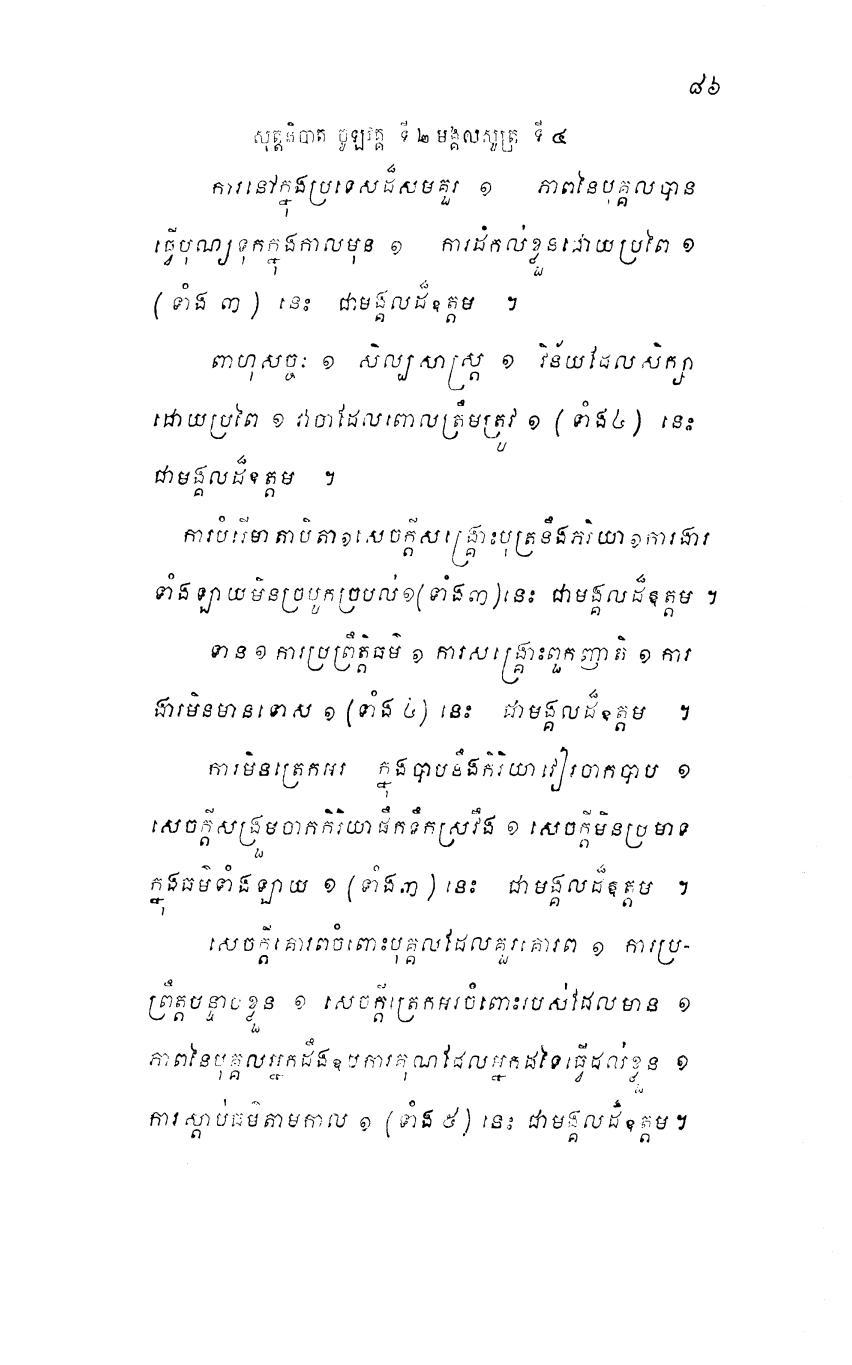 ៨៦
សុត្តនិបាត ចូឡវគ្គ ទី ២ មង្គលសូត្រ ទី ៤
ការនៅក្នុងប្រទេសដ៏សមគួរ ១ ភាពនៃបុគ្គលបាន
ធ្វើបុណ្យទុកក្នុងកាលមុន ១ ការដំកល់ខ្លួនដោយប្រពៃ ១
( ទាំង ៣ ) នេះ ជាមង្គលដ៏ឧត្តម ។
ពាហុសច្ចៈ ១ សិល្បសាស្ត្រ ១ វិន័យដែលសិក្សា
ដោយប្រពៃ ១ វាចាដែលពោលត្រឹមត្រូវ ១ ( ទាំង៤ ) នេះ
ជាមង្គលដ៏ឧត្តម ។
ការបំរើមាតាបិតា១សេចក្តីសង្គ្រោះបុត្រនឹងភរិយា១ការងារ
ទាំងឡាយមិនច្របូកច្របល់១(ទាំង៣)នេះ ជាមង្គលដ៏ឧត្តម ។
ទាន ១ ការប្រព្រឹត្តិធម៌ ១ ការសង្គ្រោះពួកញាតិ ១ ការ
ងារមិនមានទោស ១ (ទាំង ៤) នេះ ជាមង្គលដ៏ឧត្តម ។
ការមិនត្រេកអរ ក្នុងបាបនឹងកិរិយាវៀរចាកបាប ១
សេចក្តីសង្រួមចាកកិរិយាផឹកទឹកស្រវឹង ១ សេចក្តីមិនប្រមាទ
ក្នុងធម៌ទាំងឡាយ ១ (ទាំង៣ ) នេះ ជាមង្គលដ៏ឧត្តម ។
សេចក្តីគោរពចំពោះបុគ្គលដែលគួរគោរព ១ ការប្រ-
ព្រឹត្តបន្ទាបខ្លួន ១ សេចក្តីត្រេកអរចំពោះរបស់ដែលមាន ១
ភាពនៃបុគ្គលអ្នកដឹងឧបការគុណដែលអ្នកដទៃធ្វើដល់ខ្លួន ១
ការស្តាប់ធម៌តាមកាល ១ (ទាំង ៥) នេះ ជាមង្គលដ៏ឧត្តម។